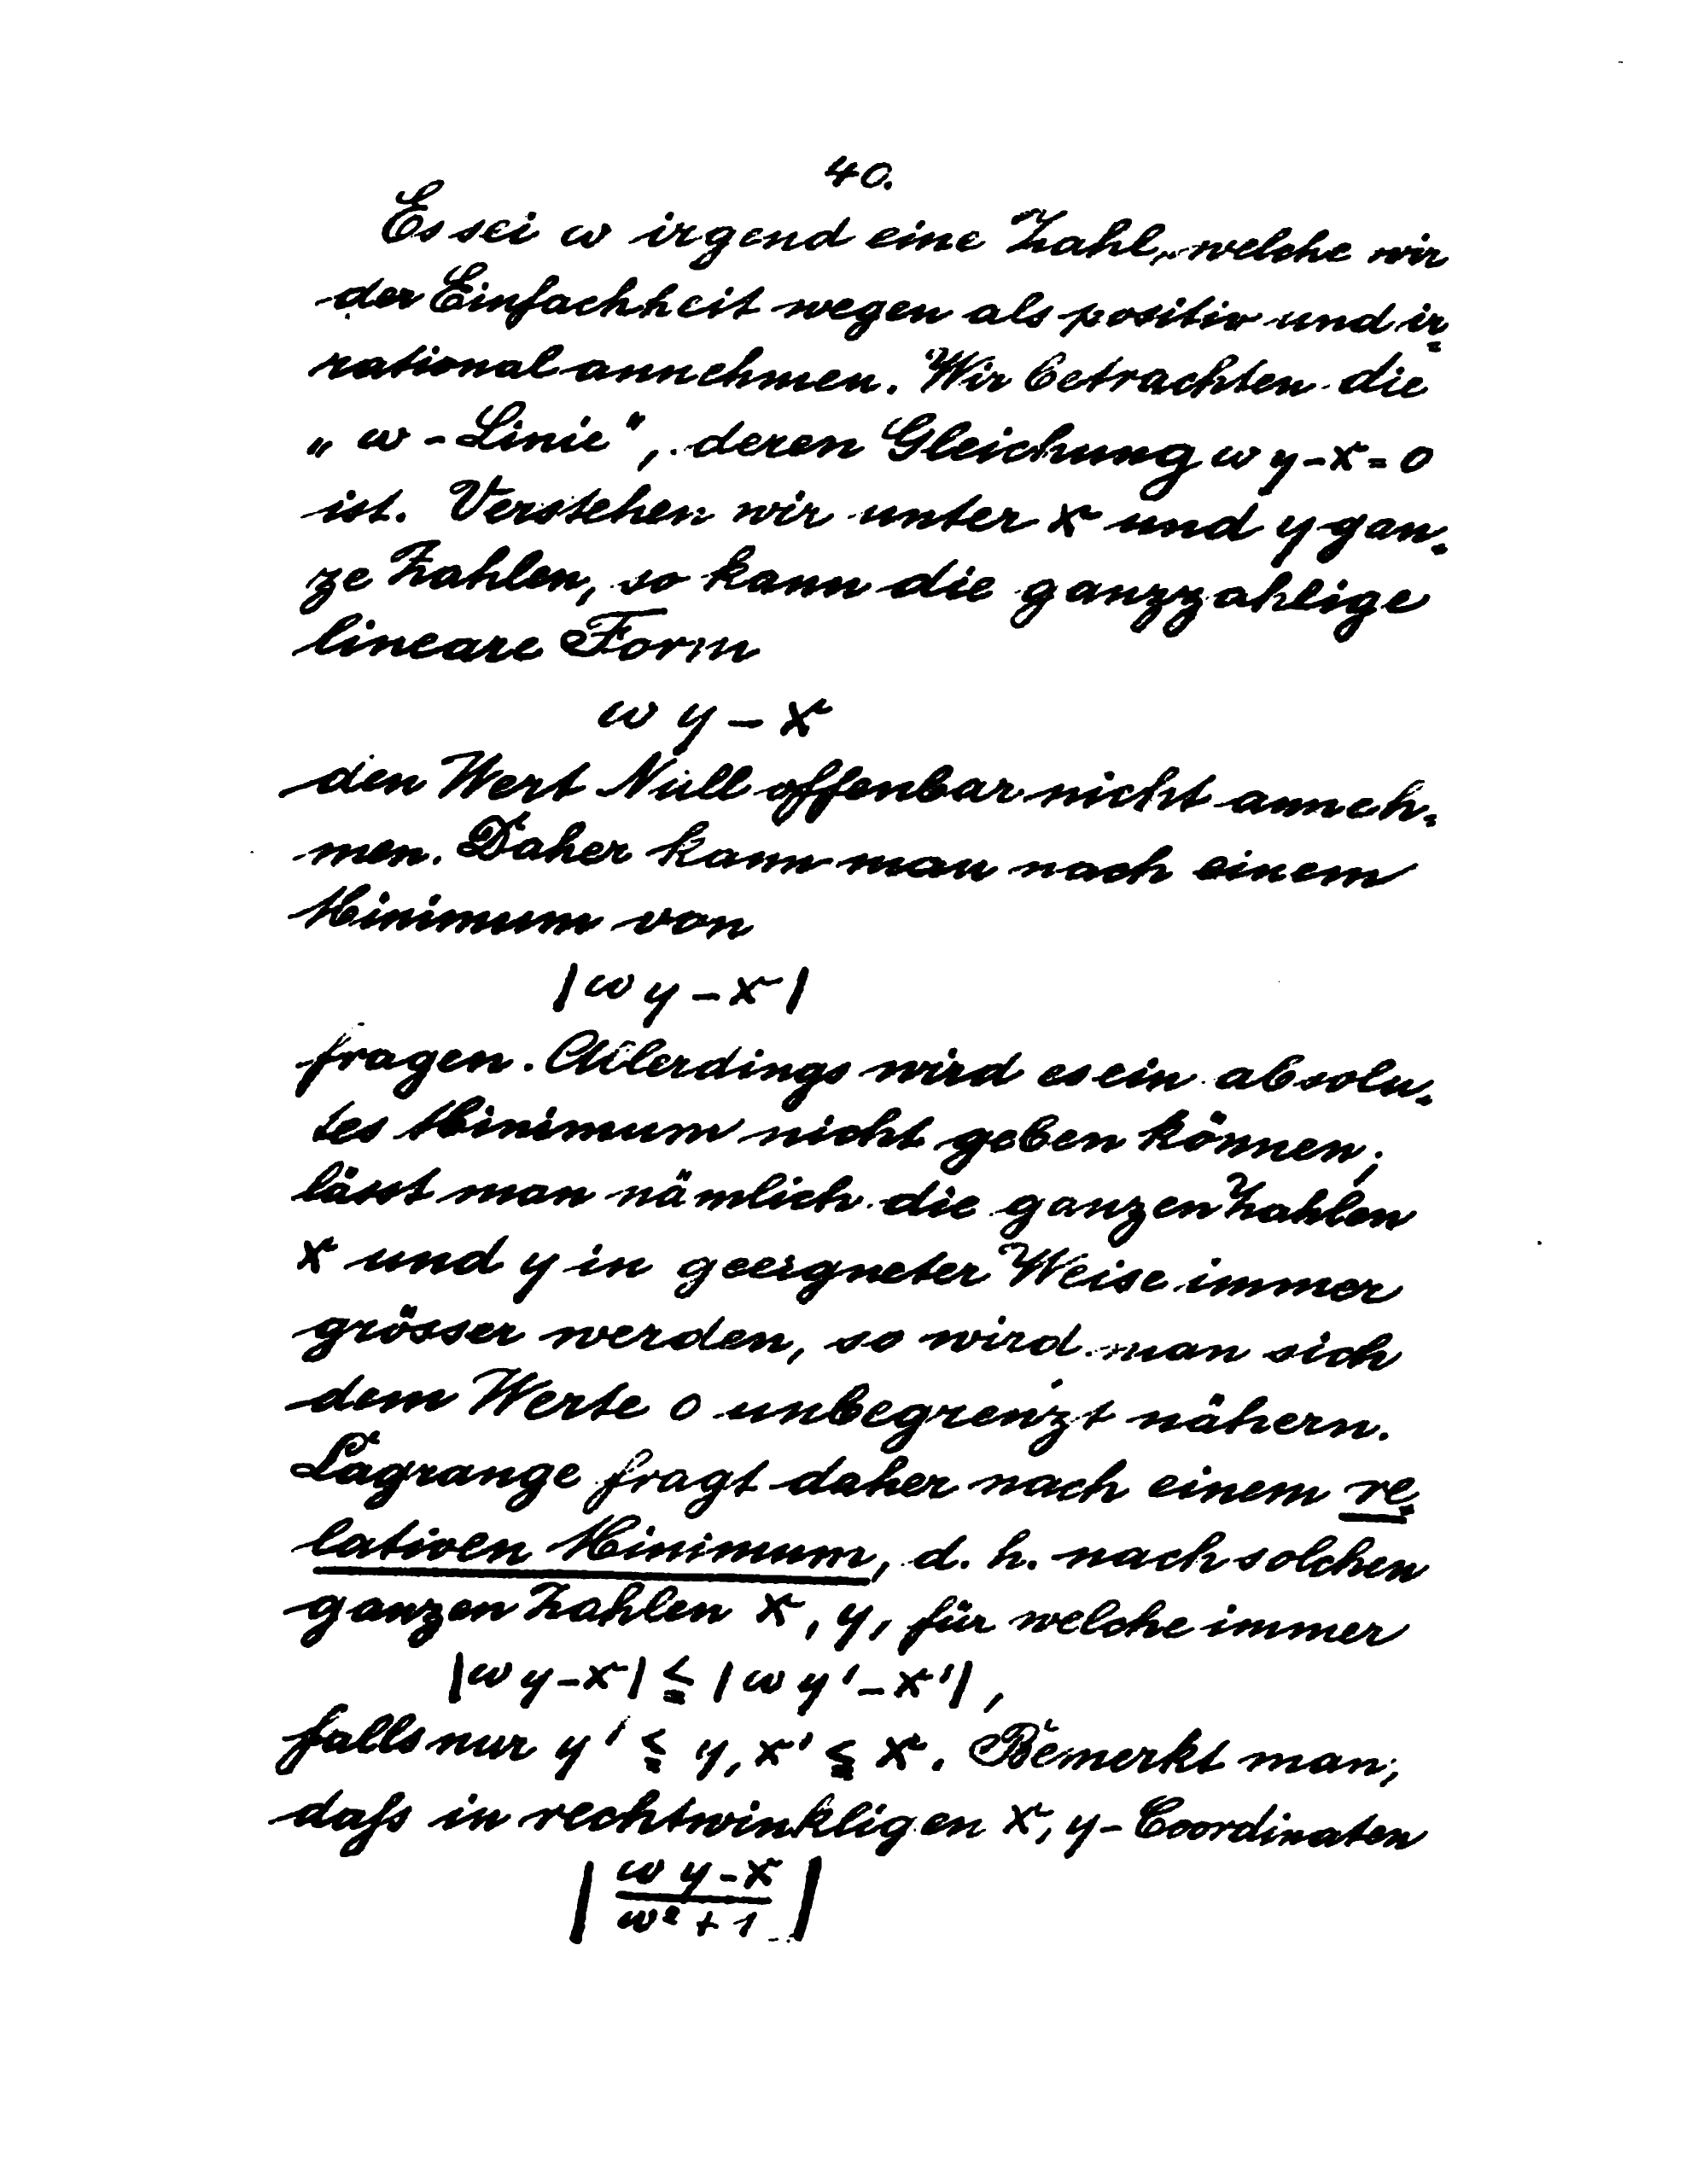 40.
Es sei ω irgend eine Zahl, welche wir
der Einfachheit wegen als positiv und ir=
rational annehmen. Wir betrachten die
„ω-Linie“, deren Gleichung ωy-x=0
ist. Verstehen wir unter x und y gan=
ze Zahlen, so kann die ganzzahlige
lineare Form
ωy-x
den Wert Null offenbar nicht anneh=
men. Daher kann man nach einem
Minimum von
|ωy-x|
fragen. Allerdings wird es ein absolu=
tes Minimum nicht geben können;
lässt man nämlich die ganzen Zahlen
x und y in geeigneter Weise immer
grösser werden, so wird man sich
dem Werte 0 unbegrenzt nähern.
Lagrange fragt daher nach einem re=
lativen Minimum, d. h. nach solchen
ganzen Zahlen x, y, für welche immer
|ωy-x| ≦ |ωy'-x'|,
falls nur y' ≦ y, x' ≦ x. Bemerkt man,
daſs in rechtwinkligen x, y-Coordinaten
|(ωy-x)/(ω²+1)|